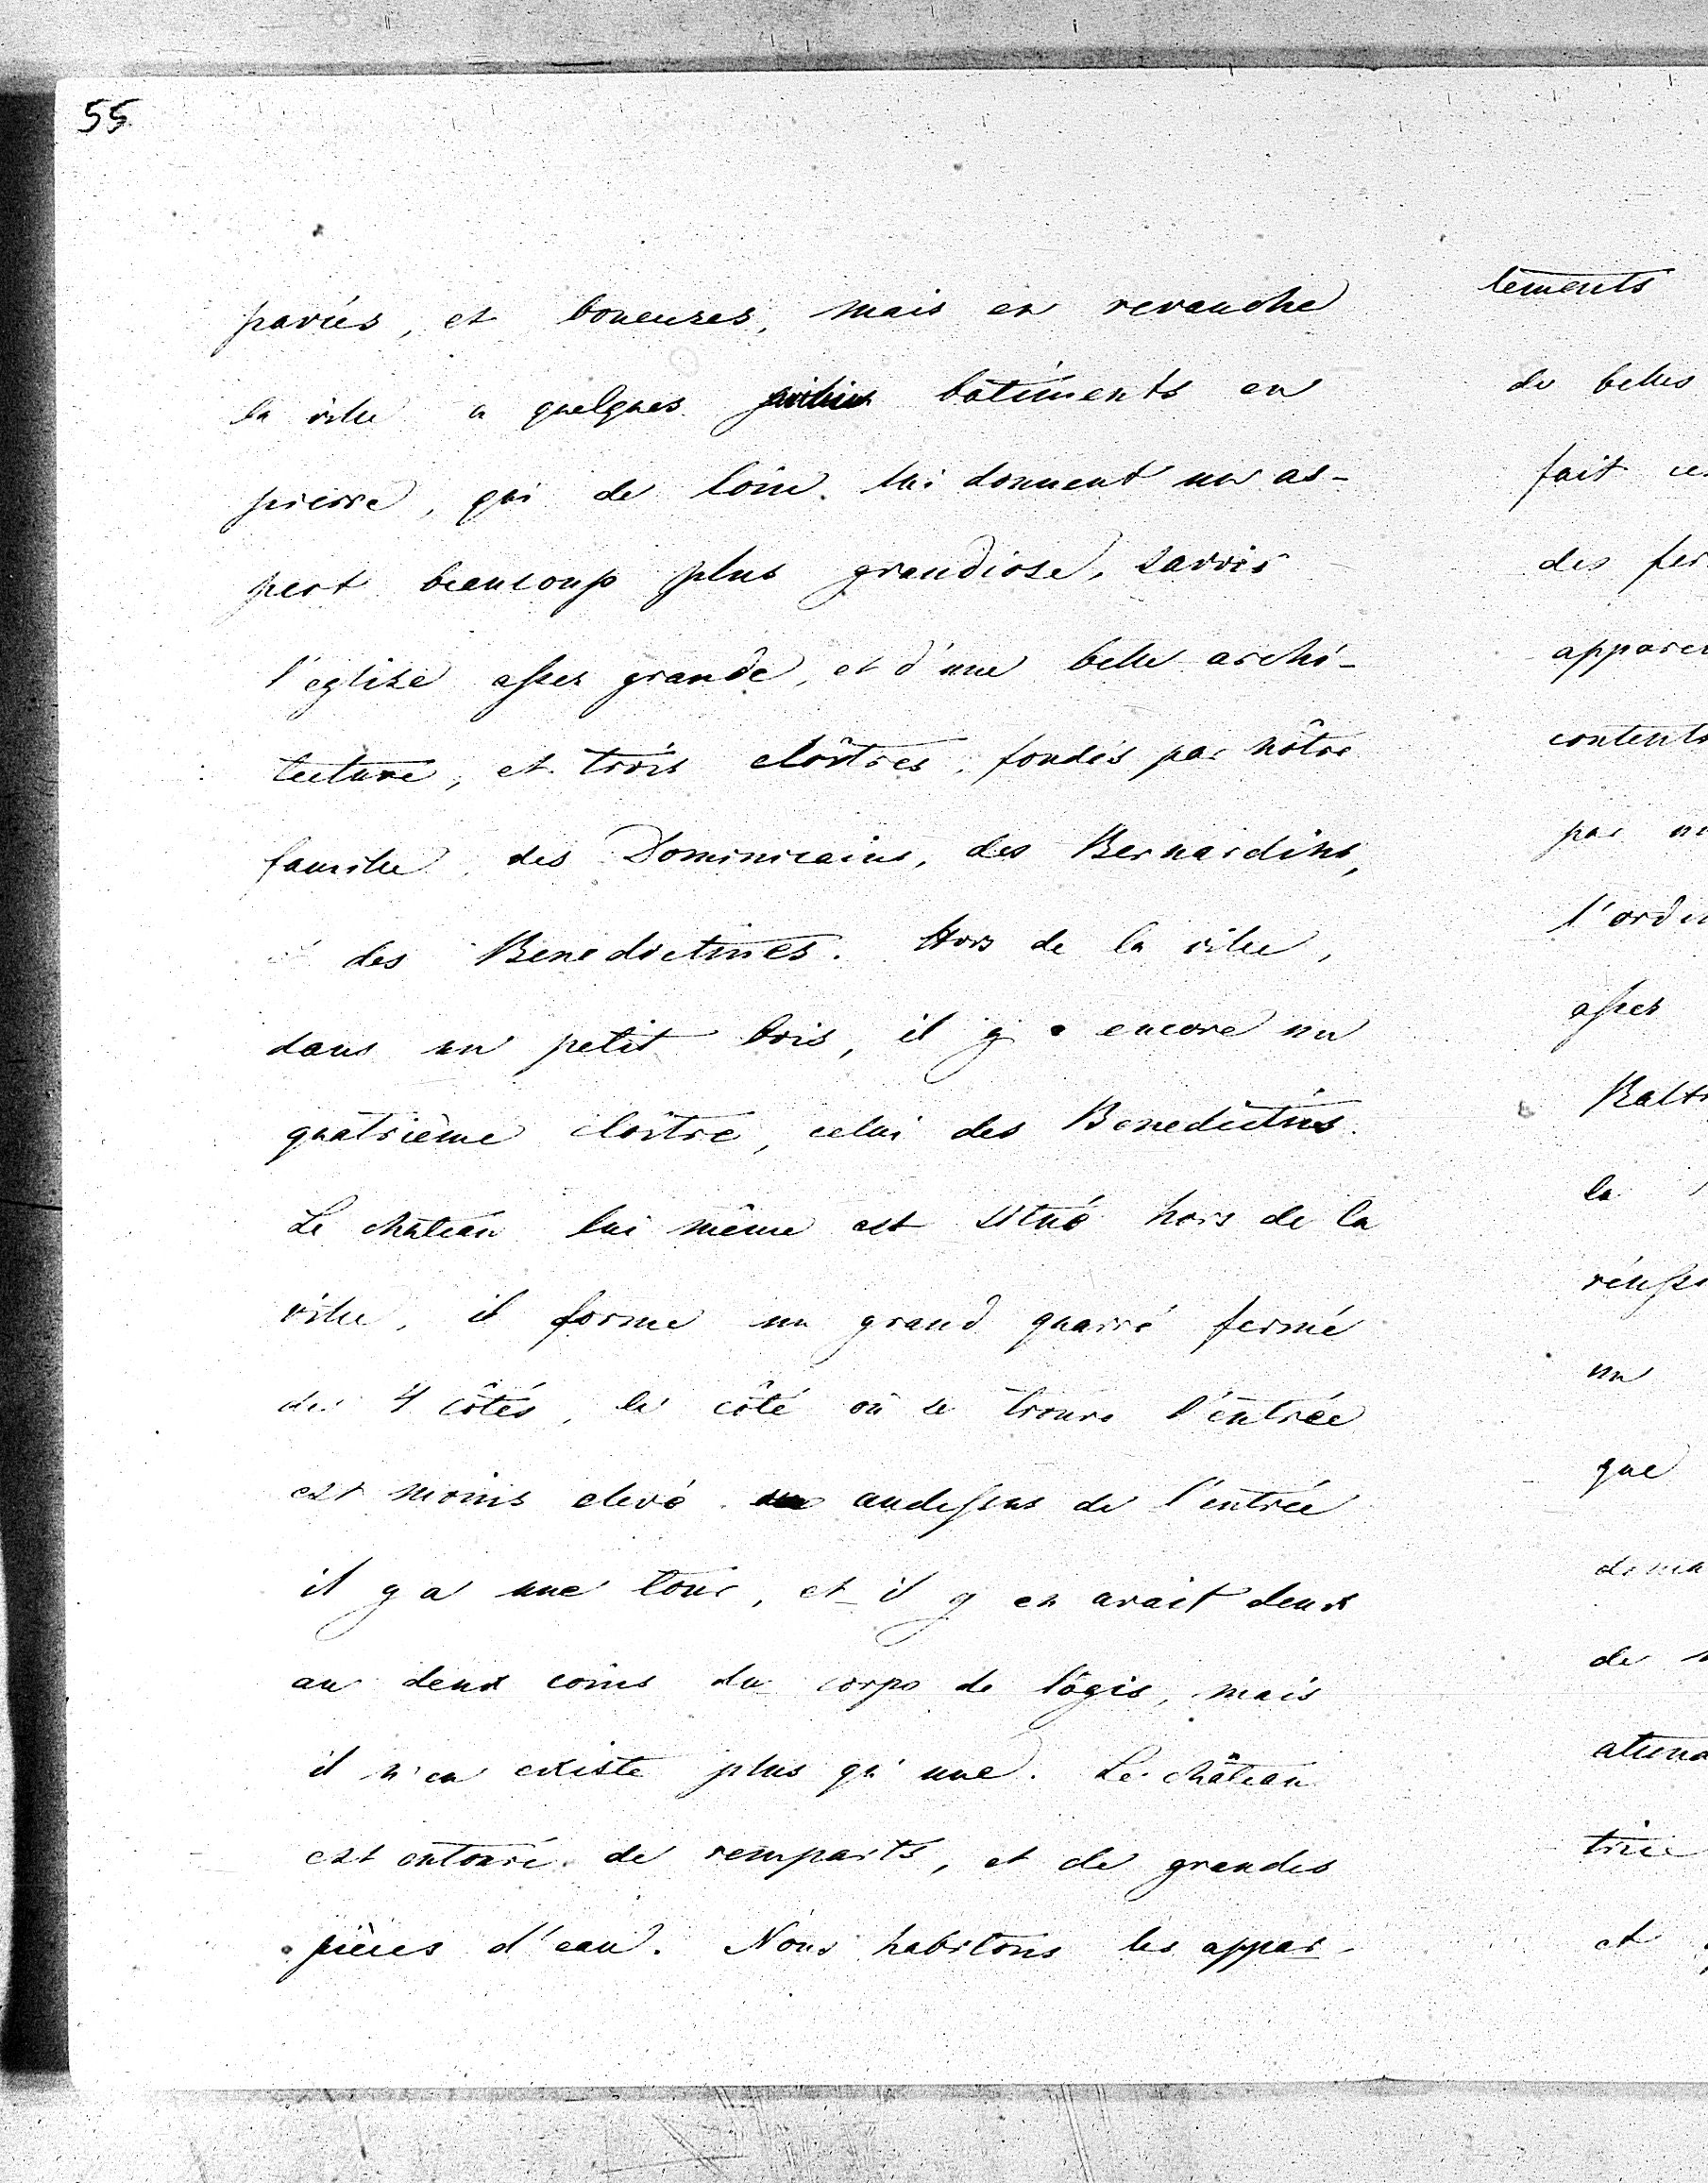 55
pavées, et boueuses, mais en revanche
la ville a quelques batiments en
pierre, qui de loin lui donnent un as-
pect beaucoup plus grandiose, savoir
l'eglise assez grande, et d'une belle archi-
tecture, et trois cloîtres, fondés par nôtre
famille, des Dominicains, des Bernardins,
des Benedictines. Hors de la ville,
dans un petit bois, il y a encore un
quatrième cloître, celui des Benedictins.
Le château lui même est situé hors de la
ville, il forme un grand quarré fermé
des 4 côtés, le côté où se trouve l'entrée
est moins elevé. audessus de l'entrée
il y a une tour, et il y en avait deux
au deux coins du corps de logis, mais
il n'en existe plus qu'une. Le château
est entouré de remparts, et de grandes
pièces d'eau. Nous habitons les appar-
tements
de belles
fait
des
contents
par
assez
la
un
que
de
et